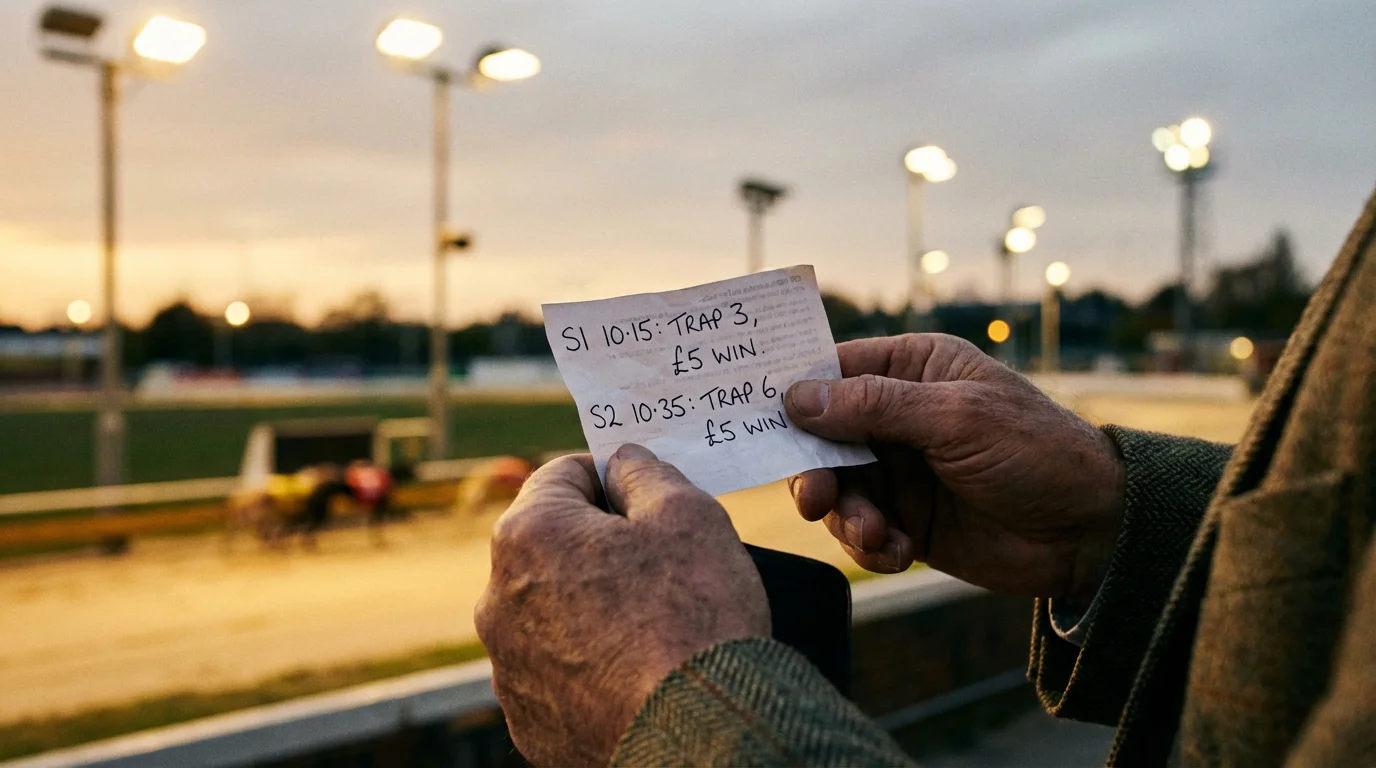 S1 10·15: TRAP 3,
£5 WIN.
S2 10·35: TRAP 6,
£5 WIN